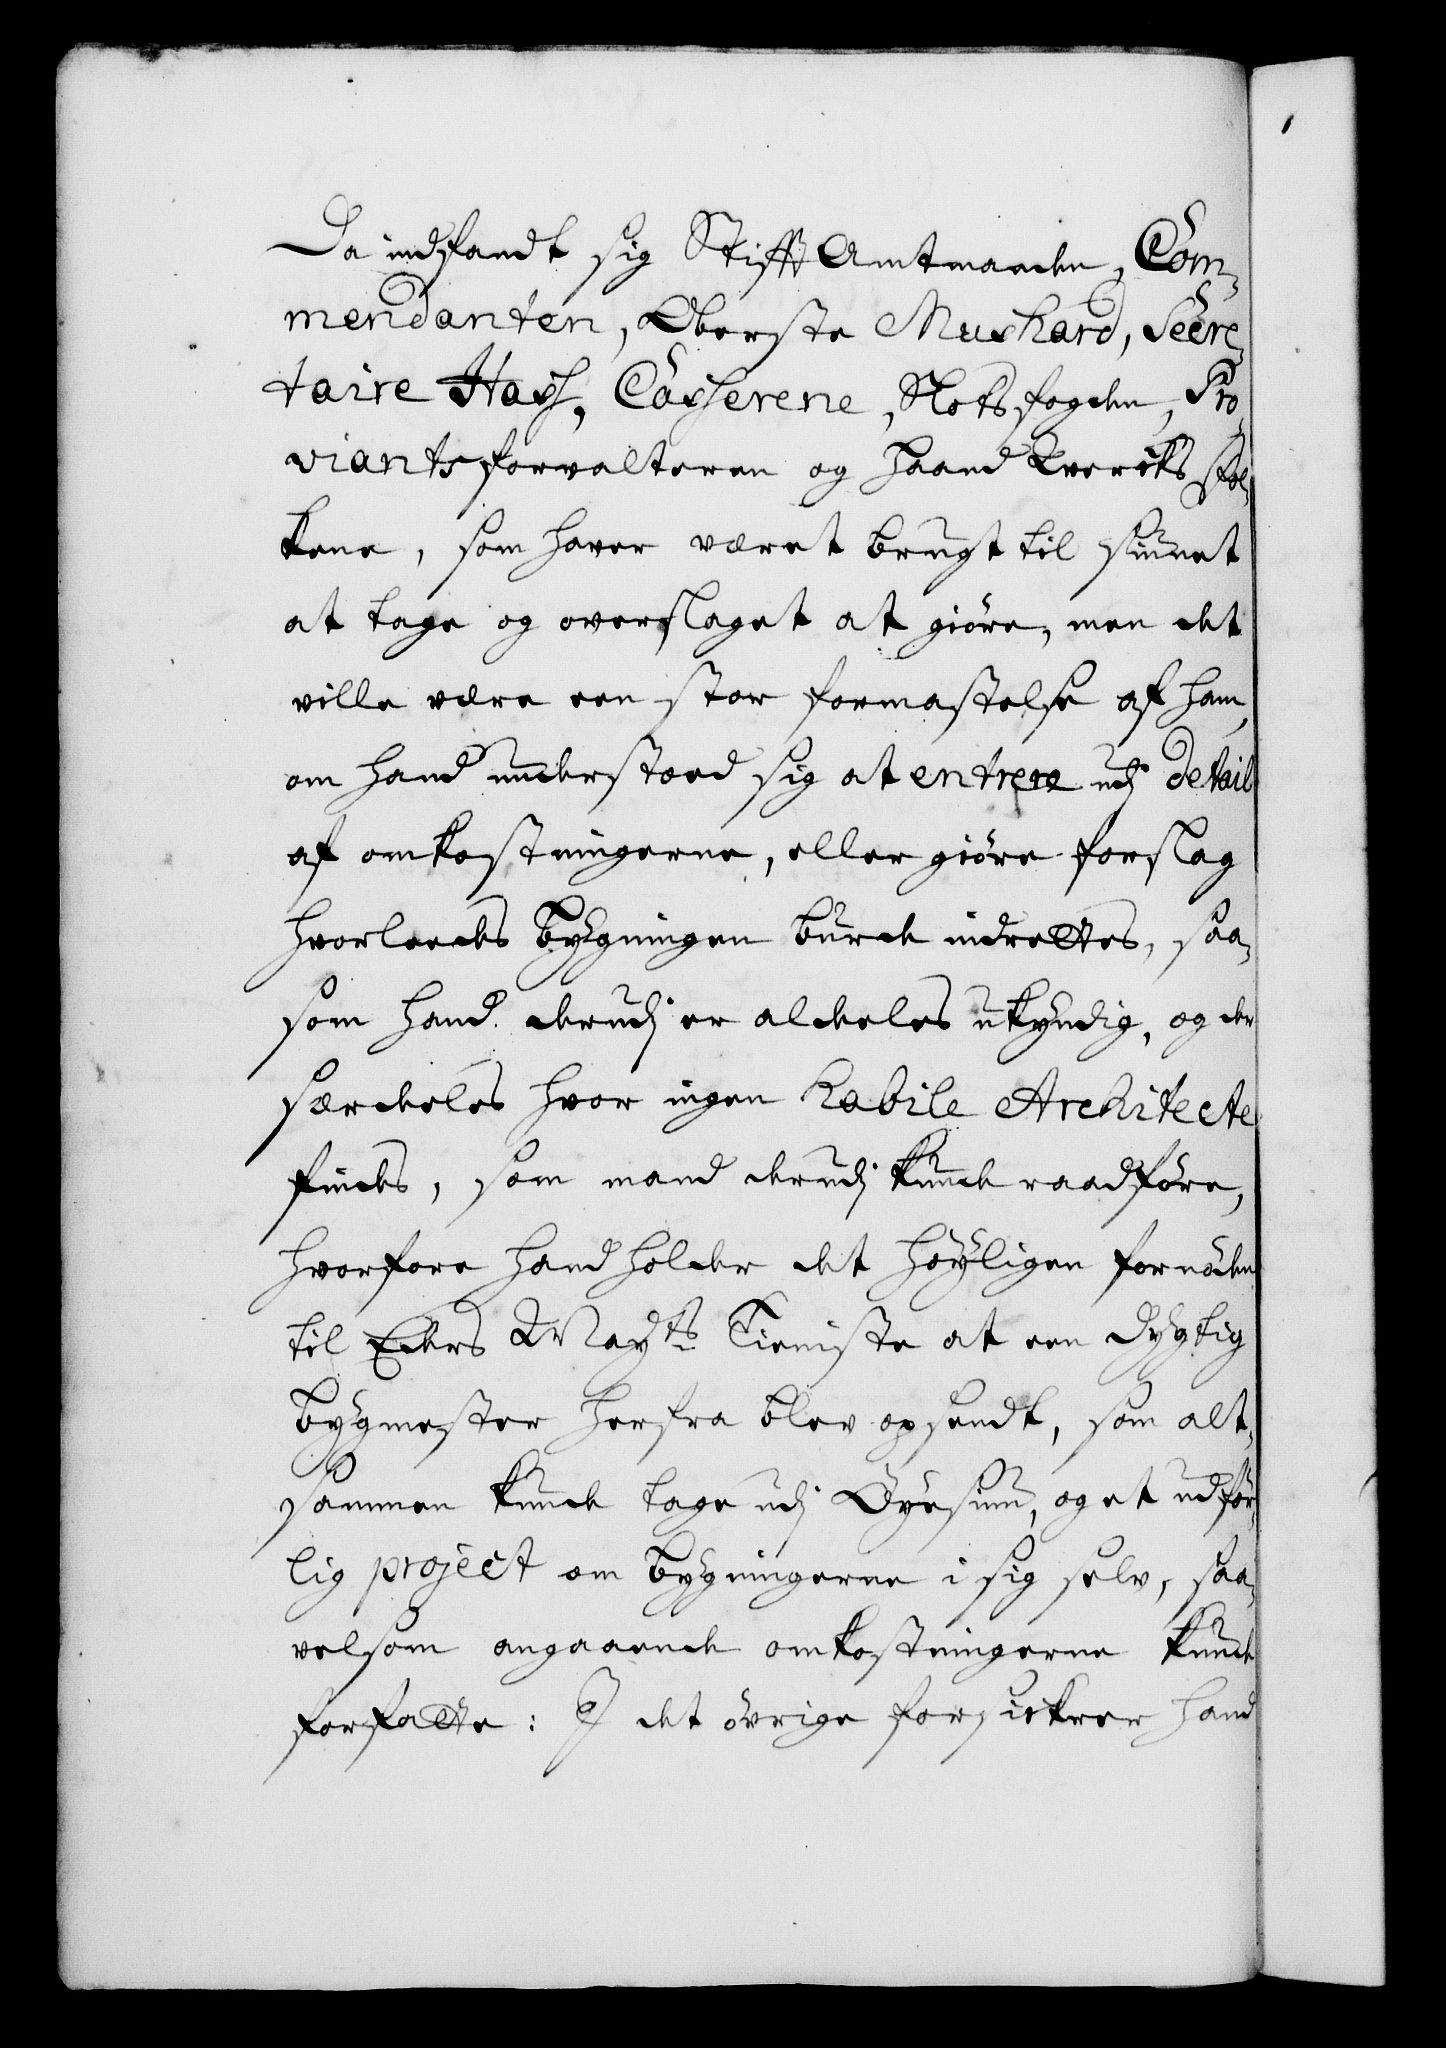 Da indfandt sig Stifft Amtmanden, Com-
mendanten, Oberste Mushard, Secre-
taire Hass, Casserene, Slotsfogden, Pro-
viantsforvalteren og Haand Kverks fol-
kene, som hafver været brugt til siunet
at tage og overslaget at giöre, men det
ville være een stor formastelse af ham,
om hand understoed sig at entrere udj detail
af omkostningerne, eller giöre forslag
hvorleedes bygningen burde indrettes, saa-
som hand derudj er aldeeles ukyndig, og der
særdeeles hvor ingen habile Architecte
findes, som mand derudj kunde raadföre,
hvorfore hand holder det höyligen fornöden
til Eders Mayts Tieniste at een dygtig
bygmester herfra blev opsendt, som alt-
sammen kunde tage udj Öyesiun, og et udför-
lig project om bygningerne i sig selv, saa-
velsom angaaende omkostningerne kunde
forfatte: I det övrige forsickrer hand